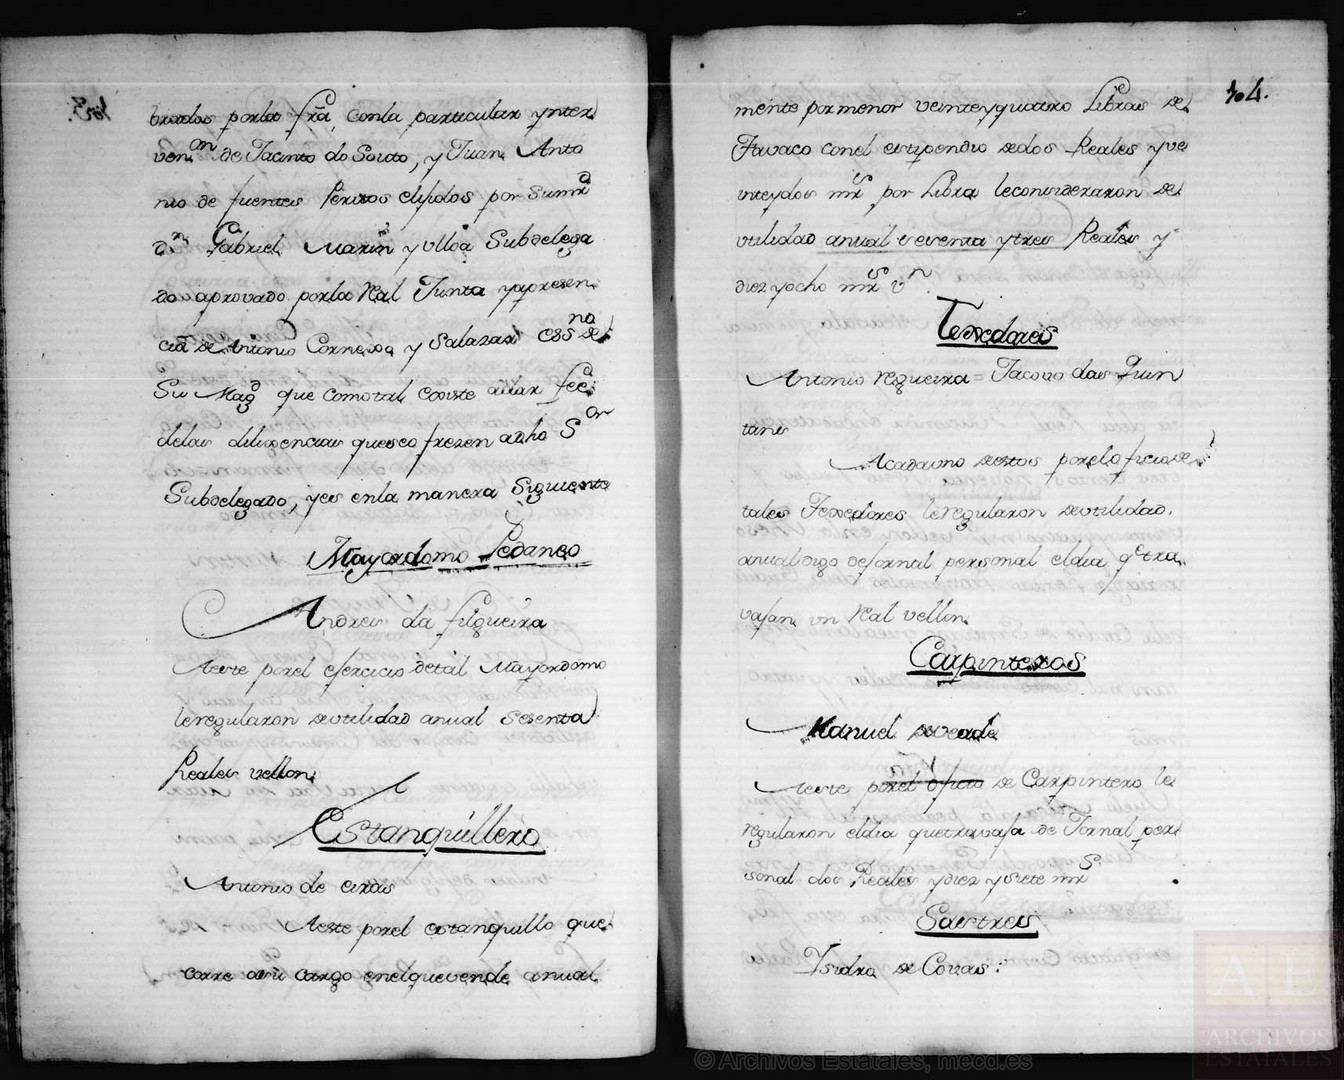 brados porla fra, conla particular ynter
von.on de Jacinto do Souto, y Juan Anto
nio de fuentes Peritos elijidos por Sumrd
Dn Gabriel Marin y Ulloa Subdelega
do aprovado porla Real Junta yapresen
cia de Antonio Cornexo y Salazar esSno de
Su Magd que comotal Coviste adar fee
delas dilixencias queseo frezen adho Sor
Subdelegado, yes enla manera Siguiente
Mayordomo Pedaneo
Andres da filgueira
Aeste porel ejercicio detal Mayordomo
leregularon deutilidad anual Sesenta
Reales vellon
Estanquillero
Antonio de eiras
Aeste porel estanquillo que
corre asu cargo enelquevende anual
104.
mente pormenor veinteyquattro Libras de
Tavaco conel estipendio dedos Reales yve
inteydos mrs por Libra leconsideraron de
utilidad anual sesenta ytres Reales y
diez yocho mrs vn
Texedores
Antonio regueira = Jacovo das Quin
tans
Acadauno destos porelo ficio de
tales Texedores leregularon deutilidad
anual digo dejornal personal eldia qe tra
vajan un Real vellon
Carpinteros
Manuel deveade
Aeste porel oficio de Carpintero le
regularon eldia quetravaja de Jornal per
sonal dos Reales ydiez ysiete mrs
Sastres
Isidro de Covas:
© Archivos Estatales, mecd.es
AE
ARCHIVOS
ESTATALES